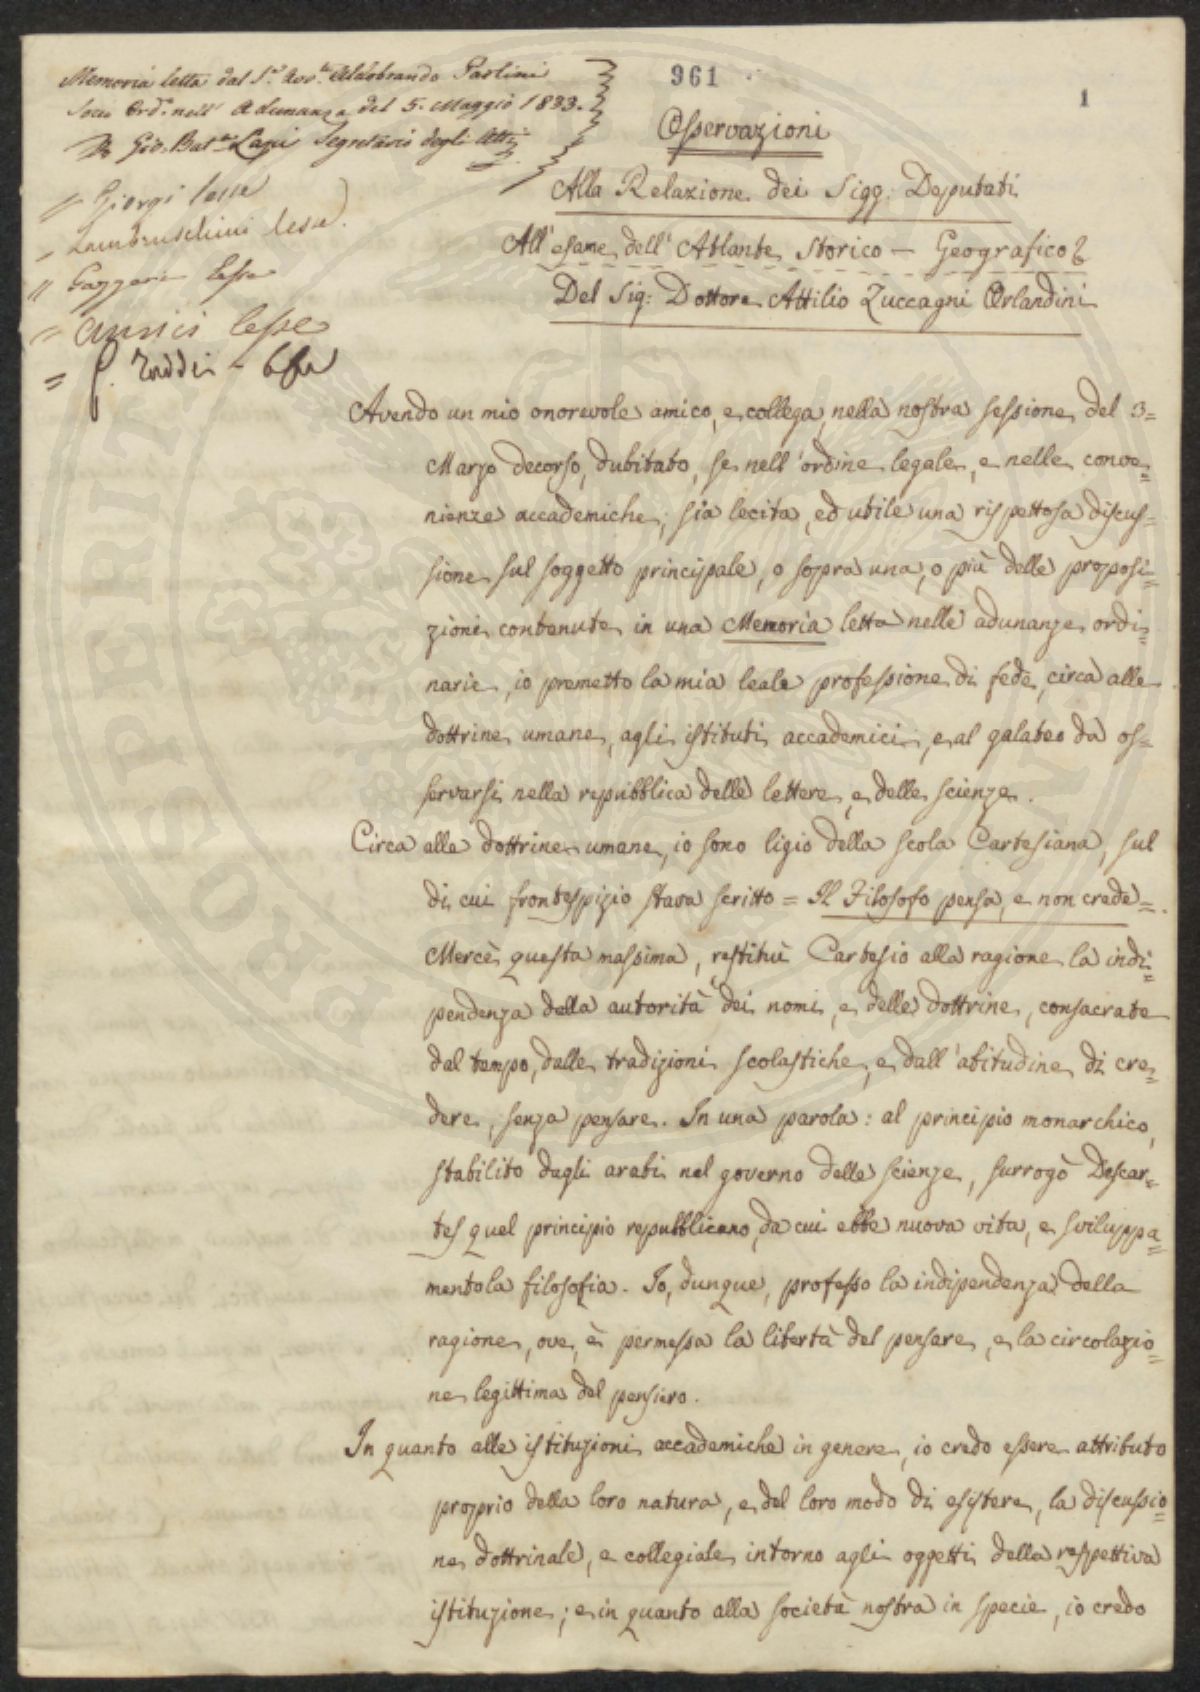 961
1
Memoria letta dal S.r Avv.to Aldobrando Paolini
Socio Ord.o nell' Adunanza del 5. Maggio 1833.
Gio. Bat.ta Lapi Segretario degli Atti
" Giorgi lesse
" Lambruschini lesse.
" Gazzeri lesse
" Amici lesse
= G. Taddei -
Osservazioni
Alla Relazione dei Sigg: Deputati
All'esame dell'Atlante Storico - Geografico
Del Sig: Dottore Attilio Zuccagni Orlandini
Avendo un mio onorevole amico, e collega, nella nostra sessione del 3=
Marzo decorso, dubitato, se nell'ordine legale, e nelle conve=
nienze accademiche, sia lecita, ed utile una rispettosa discus=
sione sul soggetto principale, o sopra una, o più delle proposi=
zioni contenute in una Memoria letta nelle adunanze ordi=
narie, io premetto la mia leale professione di fede, circa alle
dottrine umane, agli istituti accademici, e al galateo da os=
servarsi nella repubblica delle lettere, e delle scienze.
Circa alle dottrine umane, io sono ligio della scola Cartesiana, sul
di cui frontespizio stava scritto = Il Filosofo pensa, e non crede =.
Mercè questa massima, restituì Cartesio alla ragione la indi=
pendenza della autorità dei nomi, e delle dottrine, consacrate
dal tempo, dalle tradizioni scolastiche, e dall'abitudine di cre=
dere, senza pensare. In una parola: al principio monarchico,
stabilito dagli arabi nel governo delle scienze, surrogò Descar=
tes quel principio repubblicano, da cui ebbe nuova vita, e sviluppa=
mento la filosofia. Io, dunque, professo la indipendenza della
ragione, ove, è permessa la libertà del pensare, e la circolazio=
ne legittima del pensiero.
In quanto alle istituzioni accademiche in genere, io credo essere attributo
proprio della loro natura, e del loro modo di esistere, la discussio=
ne dottrinale, e collegiale intorno agli oggetti della respettiva
istituzione; e in quanto alla società nostra in specie, io credo